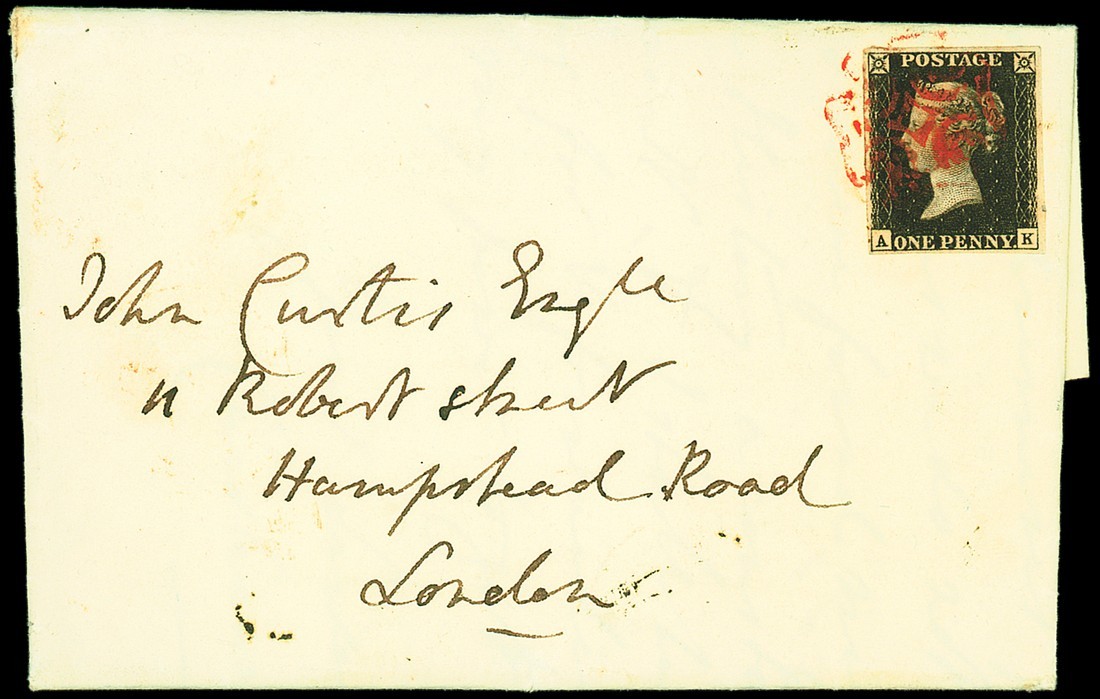 POSTAGE
A ONE PENNY K
John Curtis Esqre
11 Robert Street
Hampstead Road
London